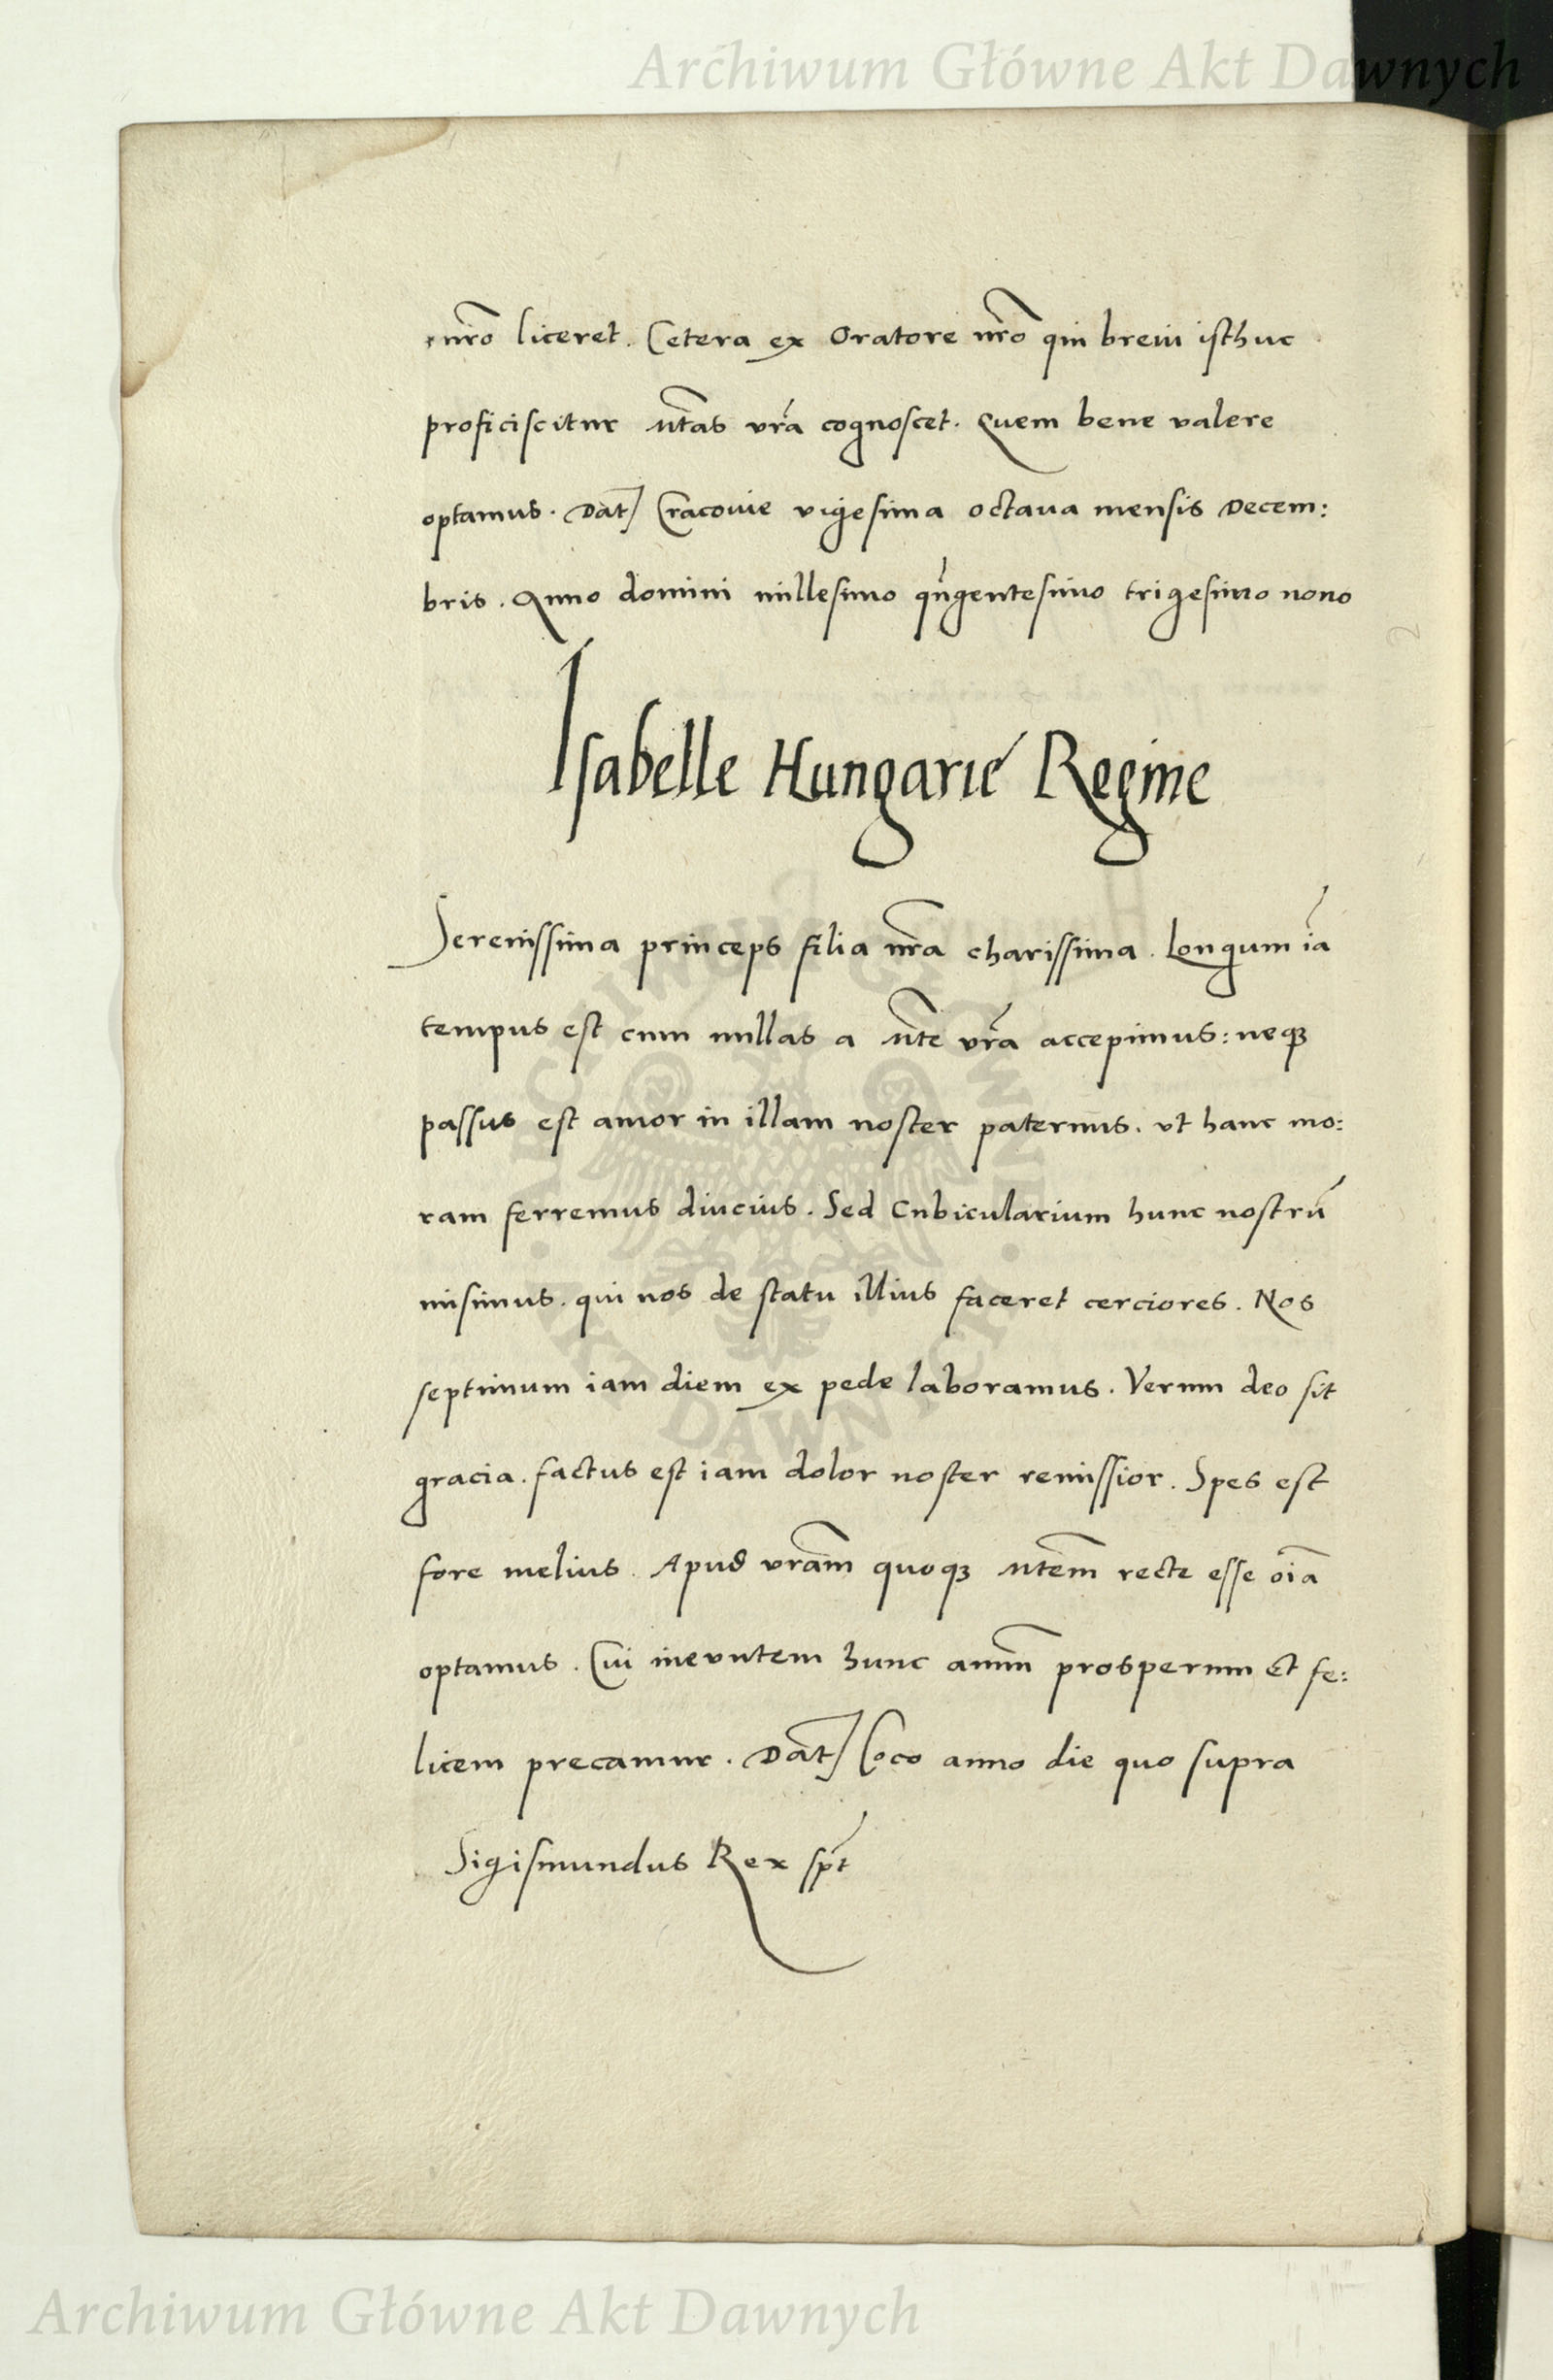 Archiwum Główne Akt Dawnych
nr̃o liceret. Cetera ex Oratore nr̃o qui breui isthuc
proficiscitur Mtas vrã cognoscet. Quem bene valere
optamus. Dat Cracouie vigesima octaua mensis Decem:
bris. Anno domini millesimo qngentesimo trigesimo nono
Isabelle Hungarie Regine
Serenissima princeps filia nrã charissima. Longum iã
tempus est cum nullas a Mte vrã accepimus: neqꝫ
passus est amor in illam noster paternus. vt hanc mo:
ram ferremus diucius. Sed Cubicularium hunc nostrũ
misimus. qui nos de statu illius faceret cerciores. Nos
septimum iam diem ex pede laboramus. Verum deo sit
gracia. factus est iam dolor noster remissior. Spes est
fore melius. Apud vrãm quoqꝫ Mtem recte esse oĩa
optamus. Cui ineuntem hunc annum prosperum Et fe:
licem precamur. Dat Loco anno die quo supra
Sigismundus Rex spt
ARCHIWUM GŁÓWNE • AKT DAWNYCH •
Archiwum Główne Akt Dawnych